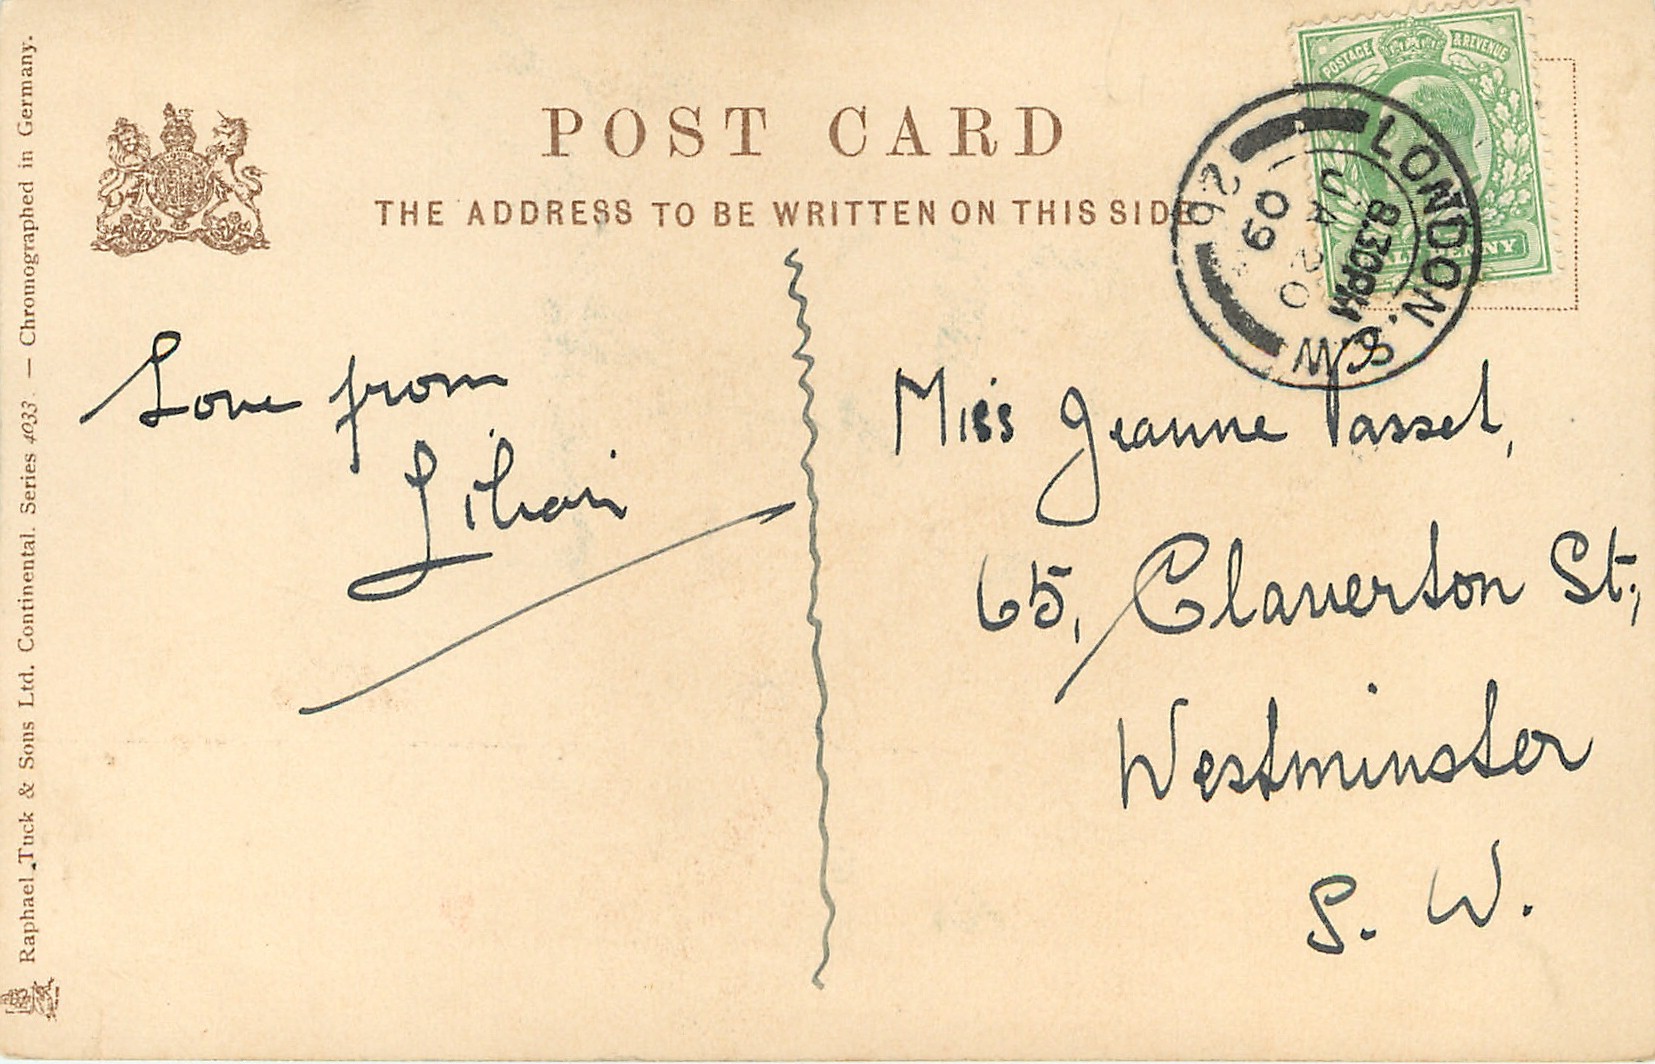 POST CARD
THE ADDRESS TO BE WRITTEN ON THIS SIDE
POSTAGE & REVENUE
LONDON. S.W
8.30PM
JA 20
09
26
Love from
Lilian
Miss Jeanne Passet,
65, Claverton St;
Westminster
S. W.
Raphael Tuck & Sons Ltd. Continental. Series 4033. — Chromographed in Germany.